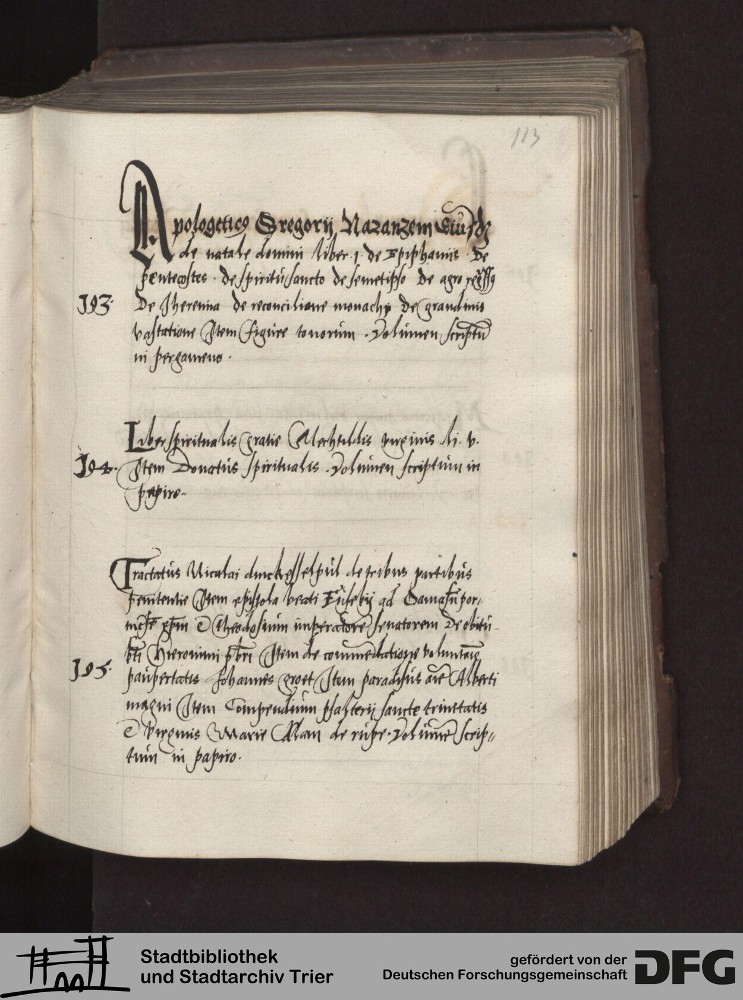 113
Apologeticꝯ Gregorij Nazanzeni Eiusdē
de natale domini liber .1. de Epiphaniis . De
pentecostes . de spiritusancto de semetipso De agro
193.
De Iheremia de reconciliatione monachorum De grandinis
vastatione Item figure tonorum . Volumen scriptū
in pergameno .
Liber spiritualis gratie Mechtildis virginis li. v.
194.
Item Donatus spiritualis . Volumen scriptum in
papiro .
Tractatus Nicolai de tribus partibus
penitentie Item epistola beati Eusebij ad Damasū por-
& Theodosium imperatorē senatorem De obitu
bti Hieronimi pbri Item de
195.
paupertatis Johannes groet Item paradisus aīe Alberti
magni Item Compendium psalterij sancte trinitatis
& virginis Marie Alani de rupe . Volumē scrip-
tum in papiro .
Stadtbibliothek
und Stadtarchiv Trier
gefördert von der
Deutschen Forschungsgemeinschaft
DFG